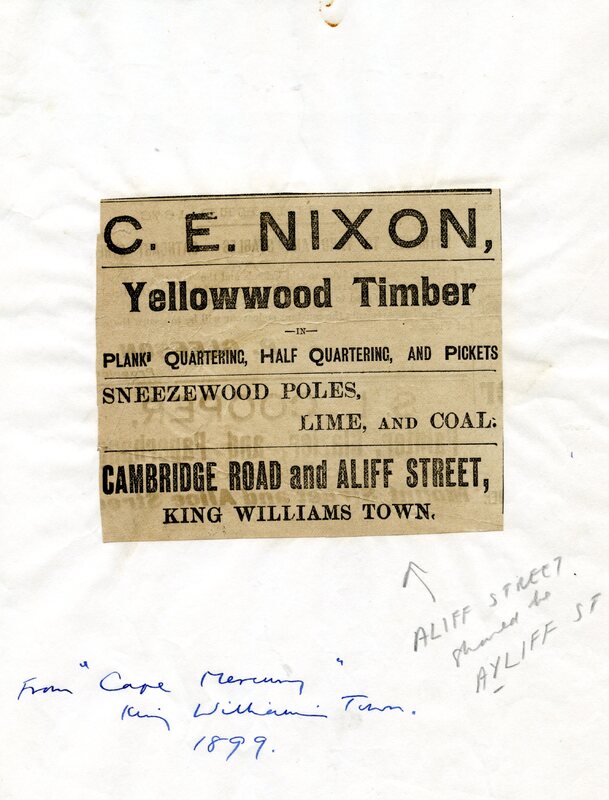 C. E. NIXON,
Yellowwood Timber
—IN—
PLANK' QUARTERING, HALF QUARTERING, AND PICKETS
SNEEZEWOOD POLES,
LIME, AND COAL.
CAMBRIDGE ROAD and ALIFF STREET,
KING WILLIAMS TOWN.
ALIFF STREET
should be
AYLIFF ST
From "Cape Mercury"
King William's Town.
1899.